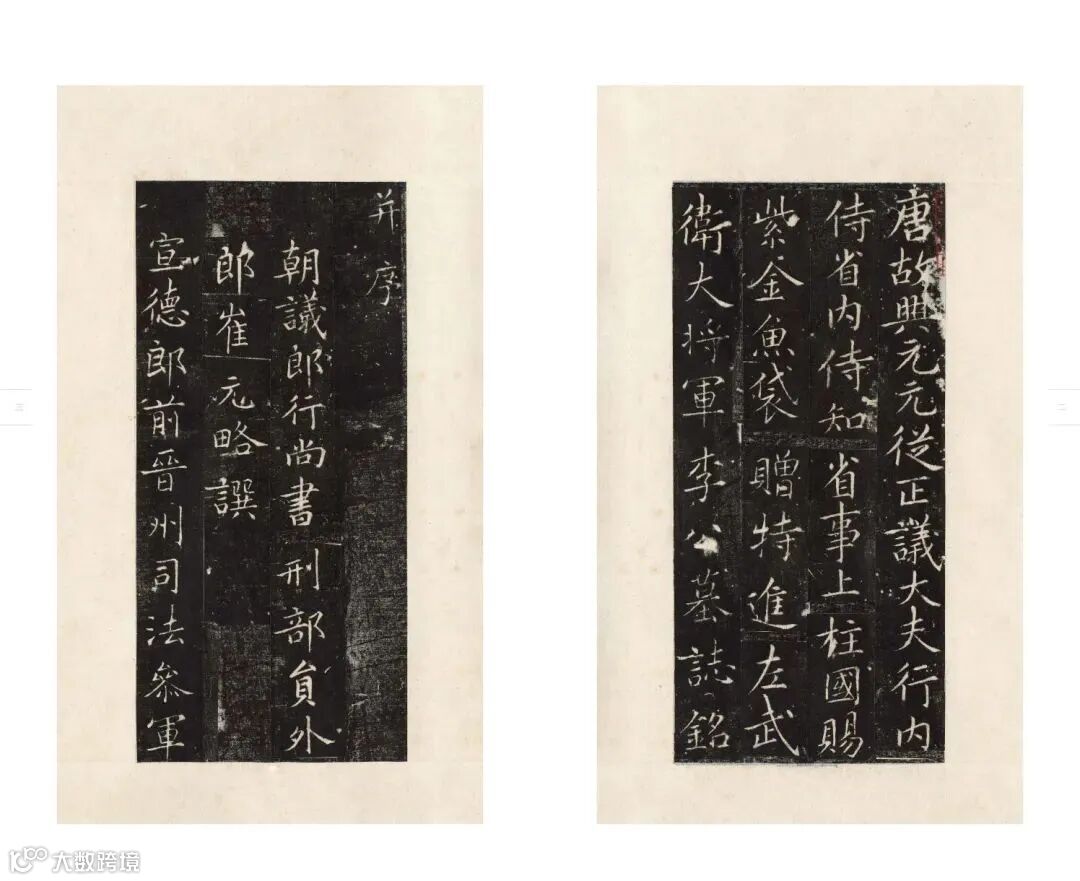 唐故興元元從正議大夫行内
侍省内侍知省事上柱國賜
紫金魚袋贈特進左武
衛大将軍李公墓誌銘
二
并序
朝議郎行尚書刑部員外
郎崔元略譔
宣德郎前晉州司法叅軍
三
大数跨境